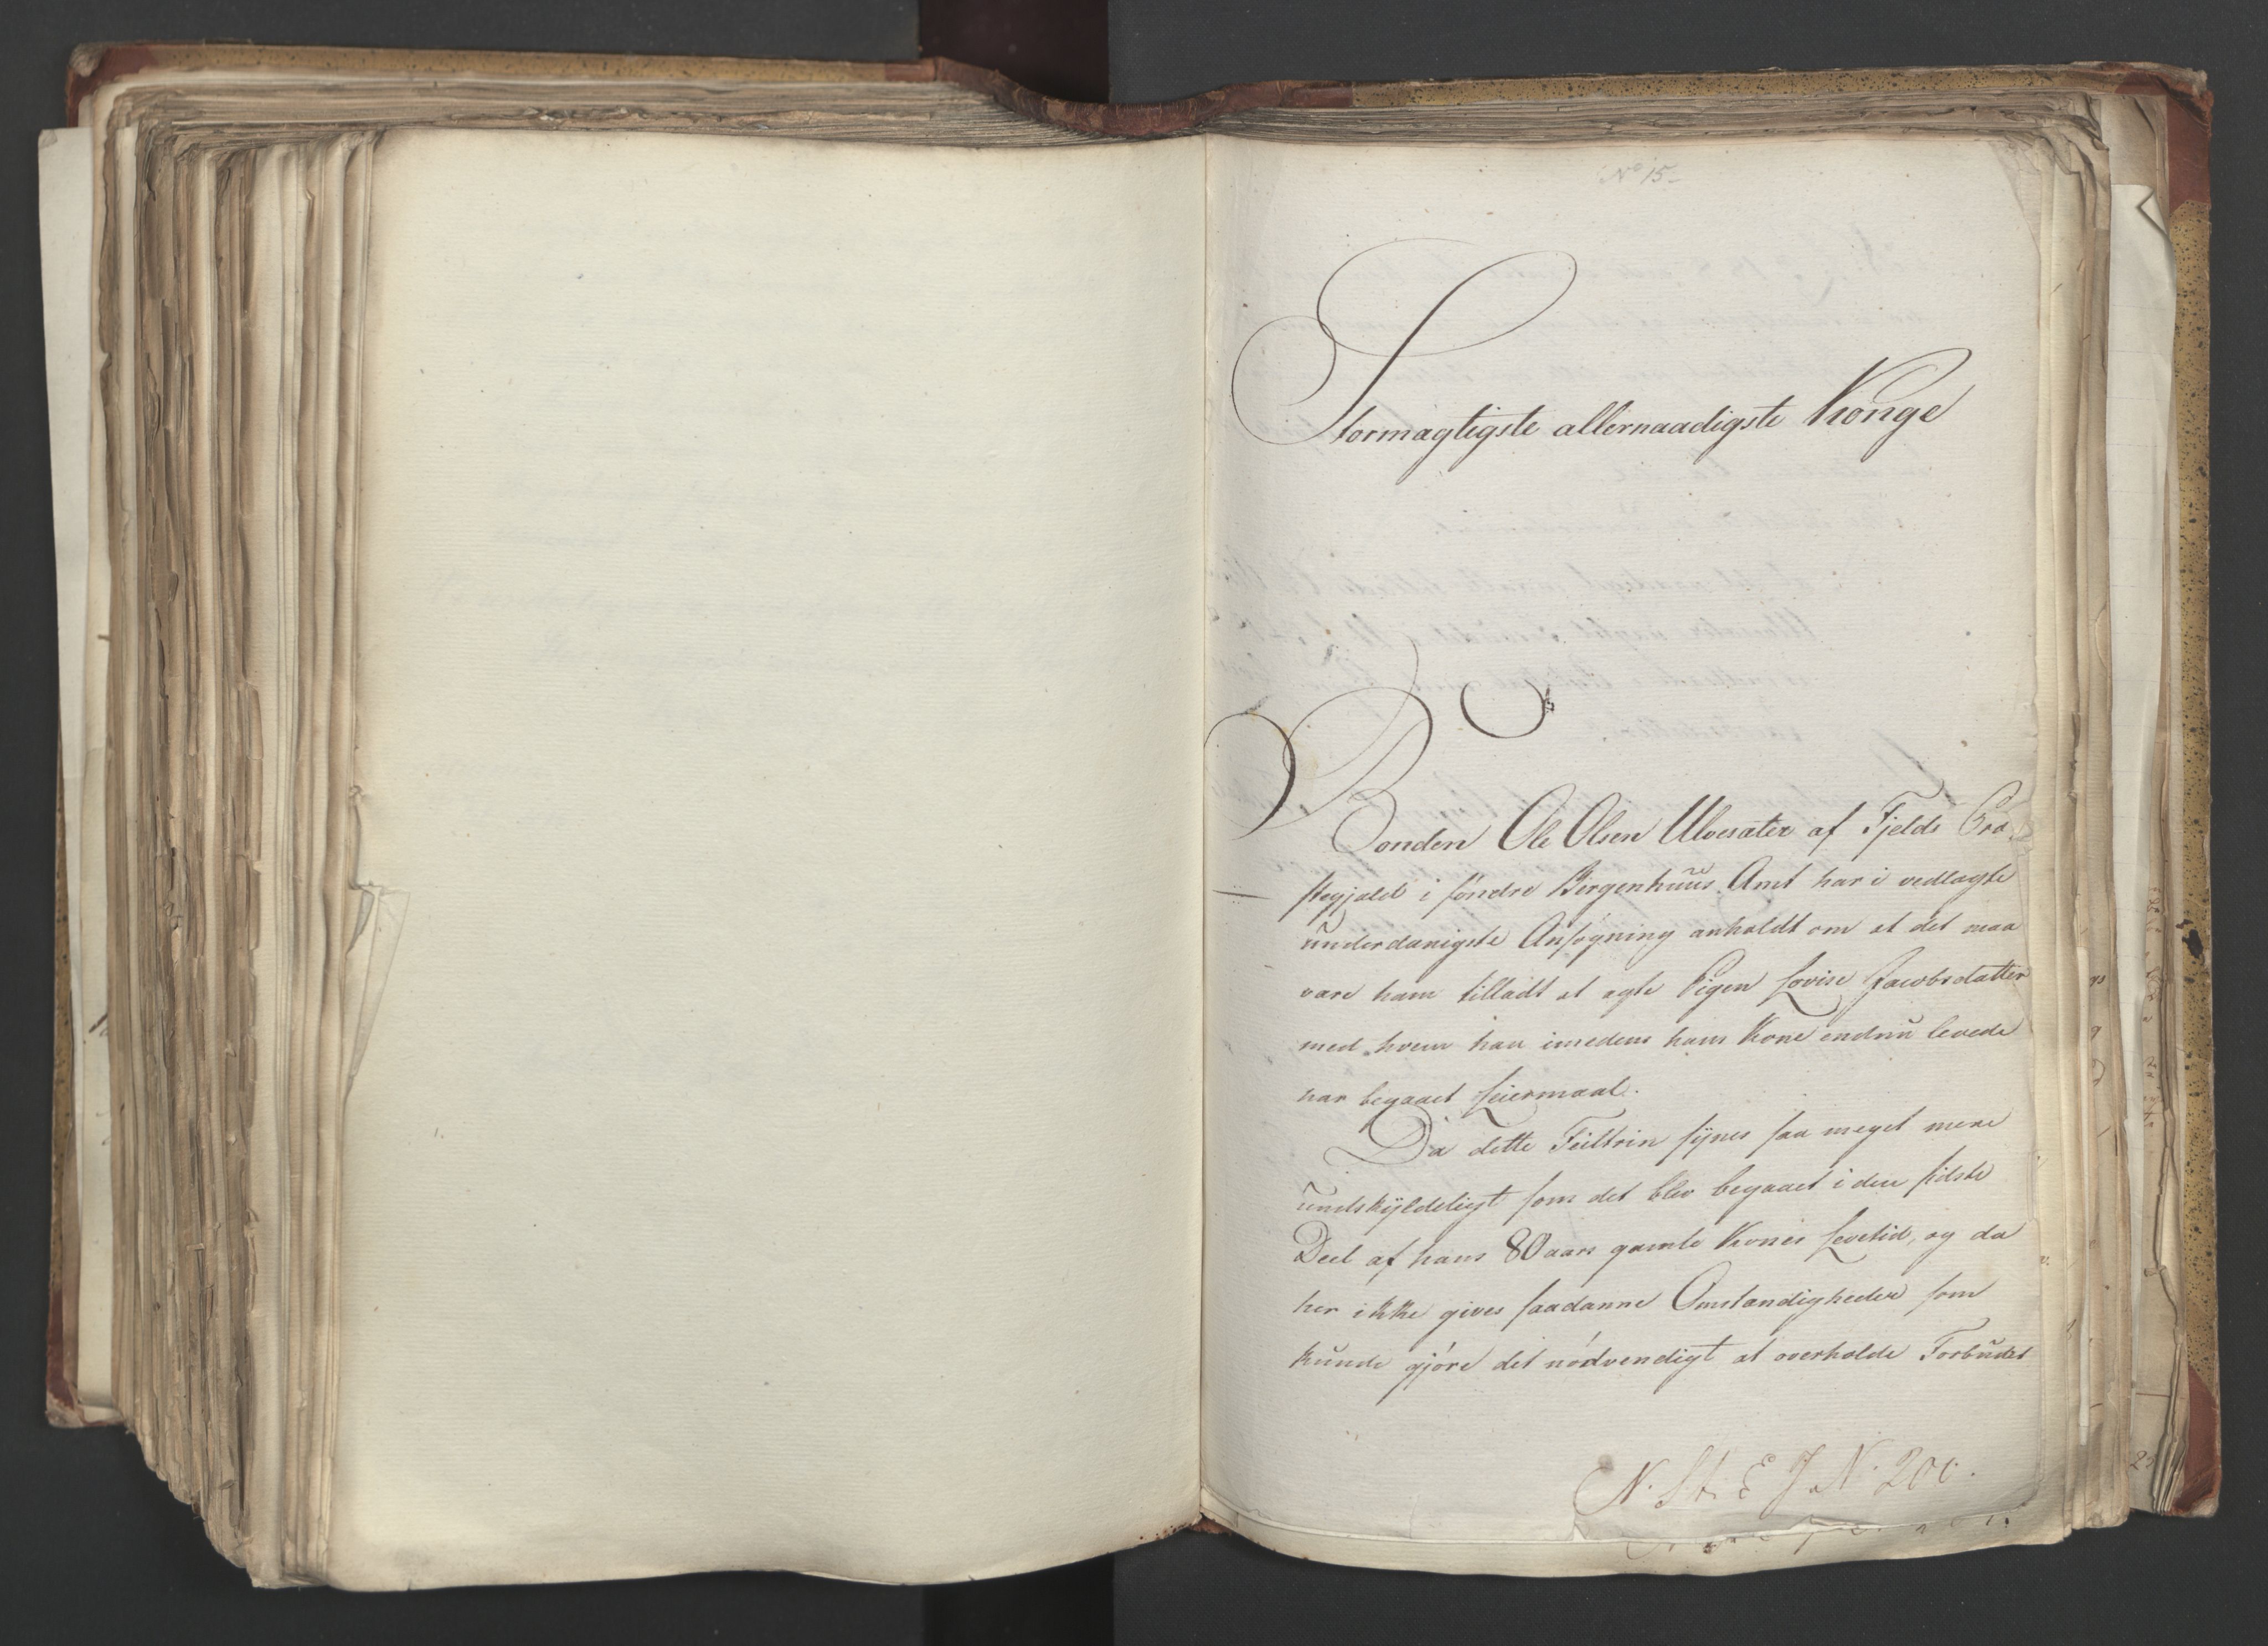 No 15-
Stormagtigste allernaadigste Konge
Bonden Ole Olsen Ulvesæter af Fjelds Præ-
stegjæld i søndre Bergenhuus Amt har i vedlagte
underdanigste Ansøgning anholdt om at det maa
være ham tilladt at ægte Pigen Lovise Jacobsdatter
med hvem han imedens hans Kone endnu levede
har begaaet Leiermaal.
Da dette Feiltrin synes saa meget mere
undskyldeligt som det blev begaaet i den sidste
Deel af hans 80 aars gamle Kones Levetid, og da
her ikke gives saadanne Omstændigheder som
kunde gjøre det nødvendigt at overholde Forbudet
N. St. E J. N. 200.